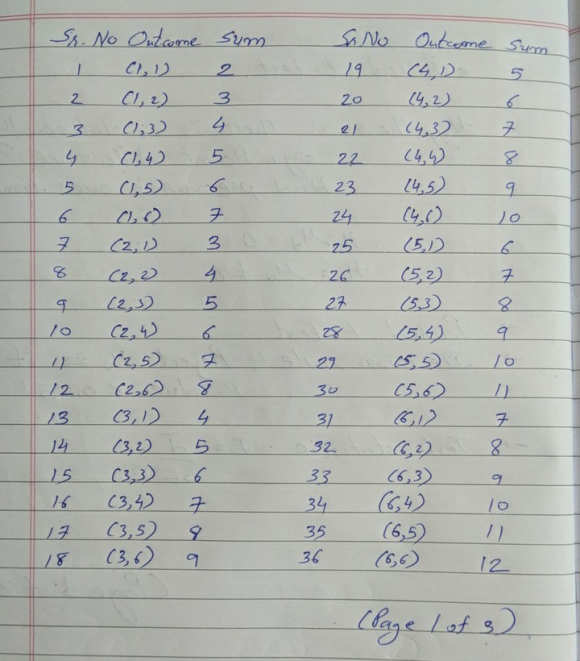 Sr. No Outcome Sum Sr. No Outcome Sum
1 (1,1) 2 19 (4,1) 5
2 (1,2) 3 20 (4,2) 6
3 (1,3) 4 21 (4,3) 7
4 (1,4) 5 22 (4,4) 8
5 (1,5) 6 23 (4,5) 9
6 (1,6) 7 24 (4,6) 10
7 (2,1) 3 25 (5,1) 6
8 (2,2) 4 26 (5,2) 7
9 (2,3) 5 27 (5,3) 8
10 (2,4) 6 28 (5,4) 9
11 (2,5) 7 29 (5,5) 10
12 (2,6) 8 30 (5,6) 11
13 (3,1) 4 31 (6,1) 7
14 (3,2) 5 32 (6,2) 8
15 (3,3) 6 33 (6,3) 9
16 (3,4) 7 34 (6,4) 10
17 (3,5) 8 35 (6,5) 11
18 (3,6) 9 36 (6,6) 12
(Page 1 of 3)